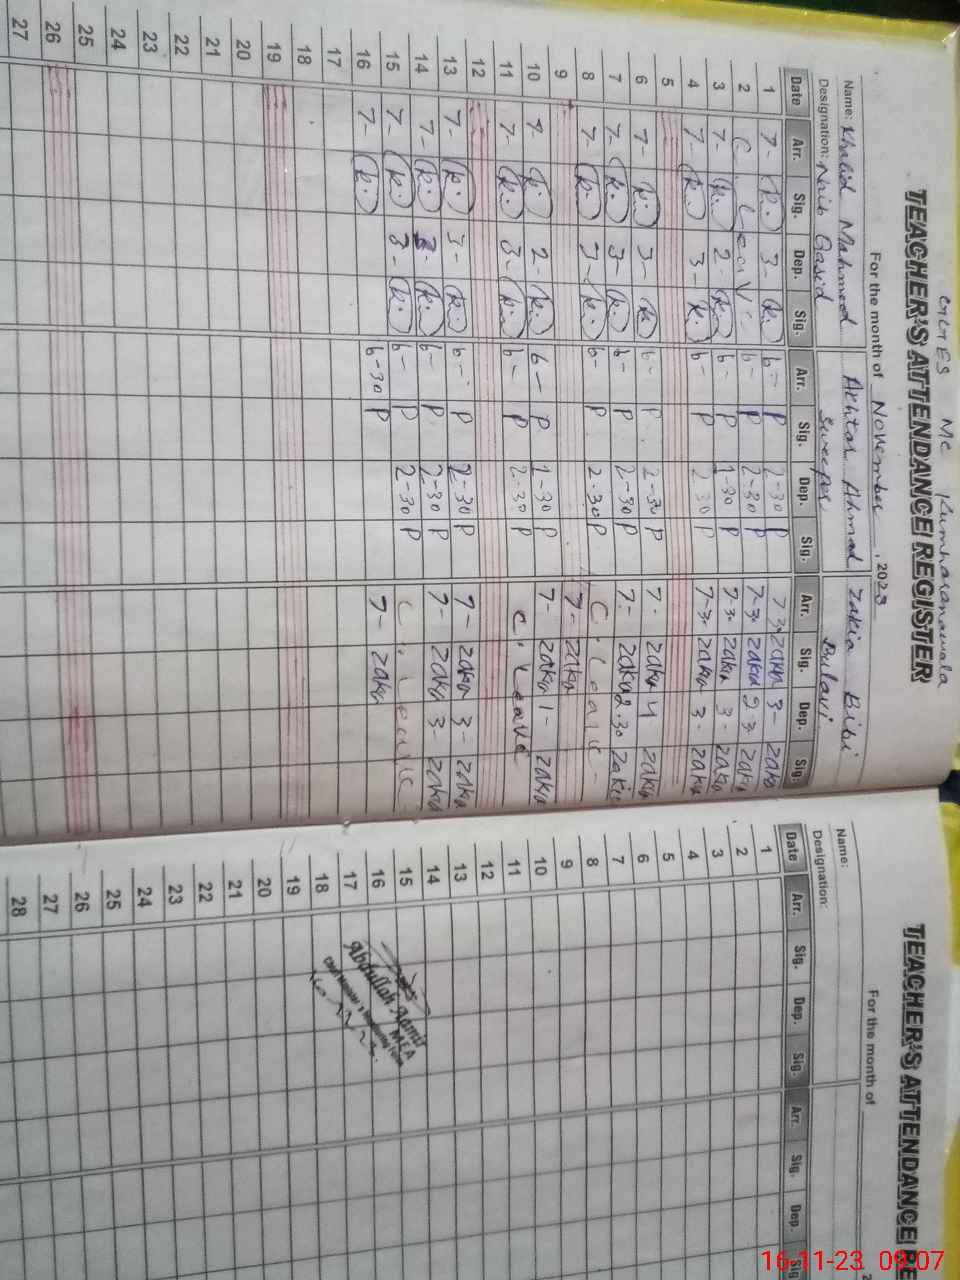 GGES MC Kumharanawala
TEACHER'S ATTENDANCE REGISTER
For the month of November, 2023
Name: Khalid Mahmood Akhtar Ahmad Zakia Bibi
Designation: Naib Qasid Sweeper Bulavi
Date Arr. Sig. Dep. Sig. Arr. Sig. Dep. Sig. Arr. Sig. Dep. Sig.
1 7- K. 3- K. 6- P 2-30 P 7-3- zakia 3- zakia
2 C. Leave 6- P 2-30 P 7-3- zakia 2-3- zakia
3 7- K. 2- K. 6- P 1-30 P 7-3- zakia 3- zakia
4 7- K. 3- K. 6- P 2-30 P 7-3- zakia 3- zakia
5
6 7- K. 3- K. 6- P 2-30 P 7- zakia 4 zakia
7 7- K. 3- K. 6- P 2-30 P 7- zakia 2.30 zakia
8 7- K. 3- K. 6- P 2-30 P C. Leave
9 7- zakia
10 7- K. 2- K. 6- P 1-30 P 7- zakia 1- zakia
11 7- K. 3- K. 6- P 2-30 P C. Leave
12
13 7- K. 3- K. 6- P 2-30 P 7- zakia 3- zakia
14 7- K. 3- K. 6- P 2-30 P 7- zakia 3- zakia
15 7- K. 3- K. 6- P 2-30 P C. Leave
16 7- K. 6-30 P 7- zakia
17
18
19
20
21
22
23
24
25
26
27
TEACHER'S ATTENDANCE RE
For the month of
Name:
Designation:
Date Arr. Sig. Dep. Sig. Arr. Sig. Dep. Sig.
1
2
3
4
5
6
7
8
9
10
11
12
13
14
15
16
17
18
19
20
21
22
23
24
25
26
27
28
Abdullah Aamir
MEA
16-11-23 09:07